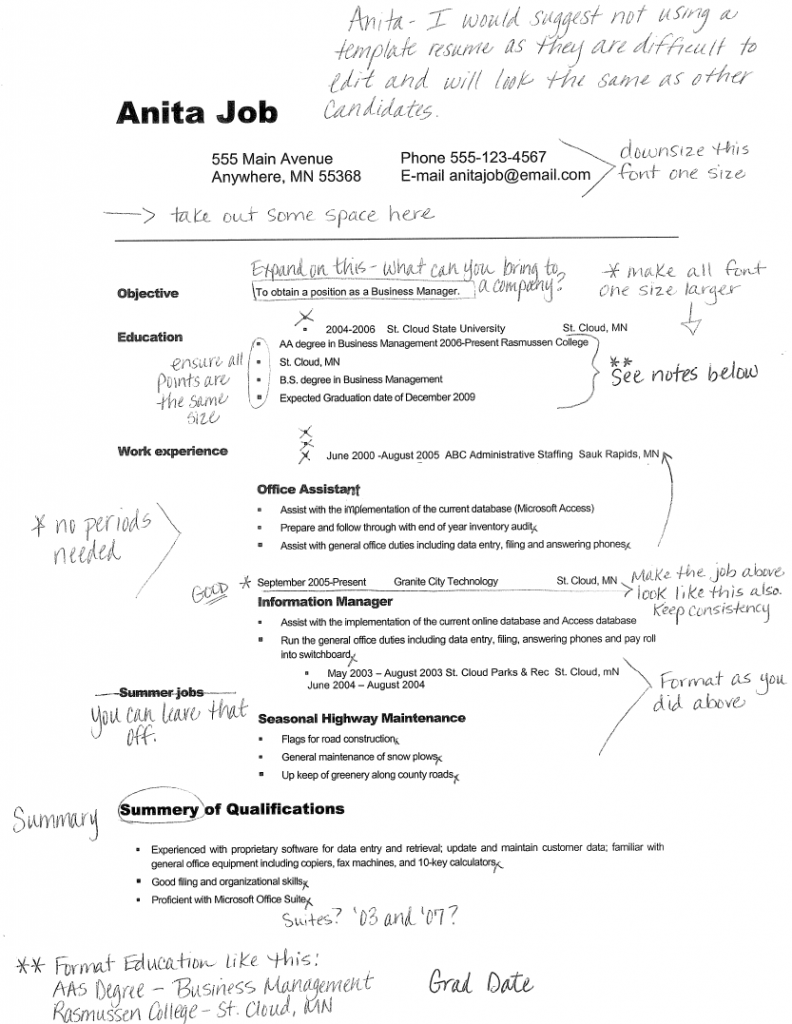 Anita - I would suggest not using a
template resume as they are difficult to
edit and will look the same as other
candidates.
Anita Job
555 Main Avenue Phone 555-123-4567
Anywhere, MN 55368 E-mail anitajob@email.com
downsize this
font one size
take out some space here
Expand on this - what can you bring to
a company?
* make all font
one size larger
Objective To obtain a position as a Business Manager.
Education 2004-2006 St. Cloud State University St. Cloud, MN
AA degree in Business Management 2006-Present Rasmussen College
St. Cloud, MN
B.S. degree in Business Management
Expected Graduation date of December 2009
ensure all
points are
the same
size
**
See notes below
Work experience June 2000 -August 2005 ABC Administrative Staffing Sauk Rapids, MN
Office Assistant
Assist with the implementation of the current database (Microsoft Access)
Prepare and follow through with end of year inventory audit.
Assist with general office duties including data entry, filing and answering phones.
* no periods
needed
GOOD * September 2005-Present Granite City Technology St. Cloud, MN
Make the job above
look like this also.
Keep consistency
Information Manager
Assist with the implementation of the current online database and Access database
Run the general office duties including data entry, filing, answering phones and pay roll
into switchboard.
May 2003 – August 2003 St. Cloud Parks & Rec St. Cloud, mN
Summer jobs June 2004 – August 2004
You can leave that
off.
Format as you
did above
Seasonal Highway Maintenance
Flags for road construction.
General maintenance of snow plows.
Up keep of greenery along county roads.
Summary
Summery of Qualifications
Experienced with proprietary software for data entry and retrieval; update and maintain customer data; familiar with
general office equipment including copiers, fax machines, and 10-key calculators.
Good filing and organizational skills.
Proficient with Microsoft Office Suite.
Suites? '03 and '07?
** Format Education like this:
AAS Degree - Business Management Grad Date
Rasmussen College - St. Cloud, MN